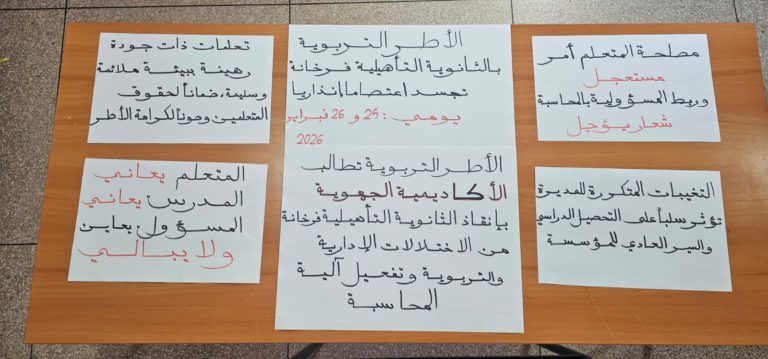 الأطر التربوية
بالثانوية التأهيلية فرخانة
تجسد اعتصاما إنذاريا
يومي : 25 و 26 فبراير
2026
الأطر التربوية تطالب
الأكاديمية الجهوية
بإنقاذ الثانوية التأهيلية فرخانة
من الاختلالات الإدارية
والتربوية وتفعيل آلية
المحاسبة
مصلحة المتعلم أمر
مستعجل
وربط المسؤولية بالمحاسبة
شعار يؤجل
التغيبات المتكررة للمديرة
تؤثر سلبا على التحصيل الدراسي
والسير العادي للمؤسسة
تعلمات ذات جودة
رهينة ببيئة ملائمة
وسليمة، ضمانا لحقوق
المتعلمين وصونا لكرامة الأطر
المتعلم يعاني
المدرس يعاني
المسؤول يعاين
ولا يبالي